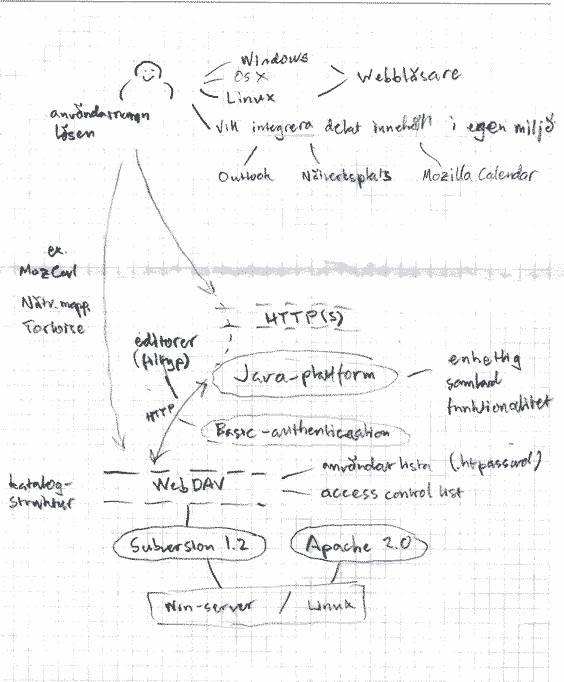 Windows
OS X
Linux
Webbläsare
användarnamn
lösen
Vill integrera delat innehåll i egen miljö
Outlook
Nätverksplats
Mozilla Calendar
ex.
MozCal
Nätv.mapp
Tortoise
HTTP(S)
editorer
(filtyp)
Java-plattform
enhetlig
samlad
funktionalitet
HTTP
Basic-authentication
användarlista (.htpasswd)
WebDAV
access control list
katalog-
struktur
Subversion 1.2
Apache 2.0
Win-server / Linux